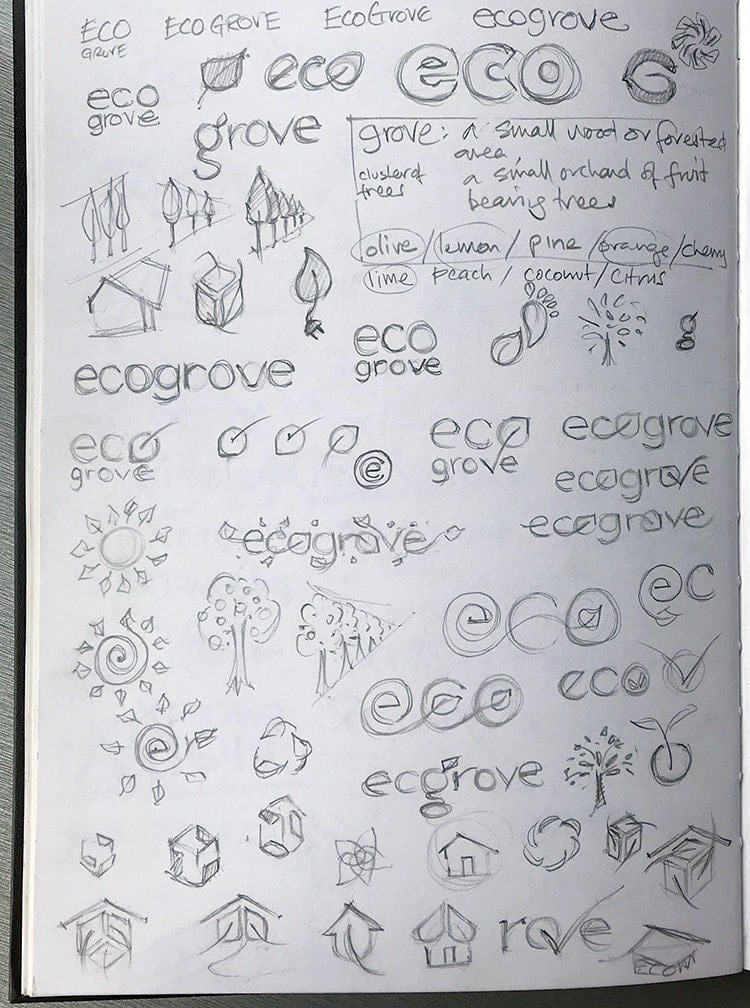 ECO
GROVE
ECO GROVE
ECOGROVE
ecogrove
eco
grove
eco
eco
grove
grove: a small wood or forested
area,
cluster of
trees
a small orchard of fruit
bearing trees
olive / lemon / pine / orange / cherry
lime peach / coconut / citrus
eco
grove
g
ecogrove
eco
grove
e
eco
grove
ecogrove
ecogrove
ecogrove
ecogrove
eco
ec
eco
eco
e
ecgrove
rove